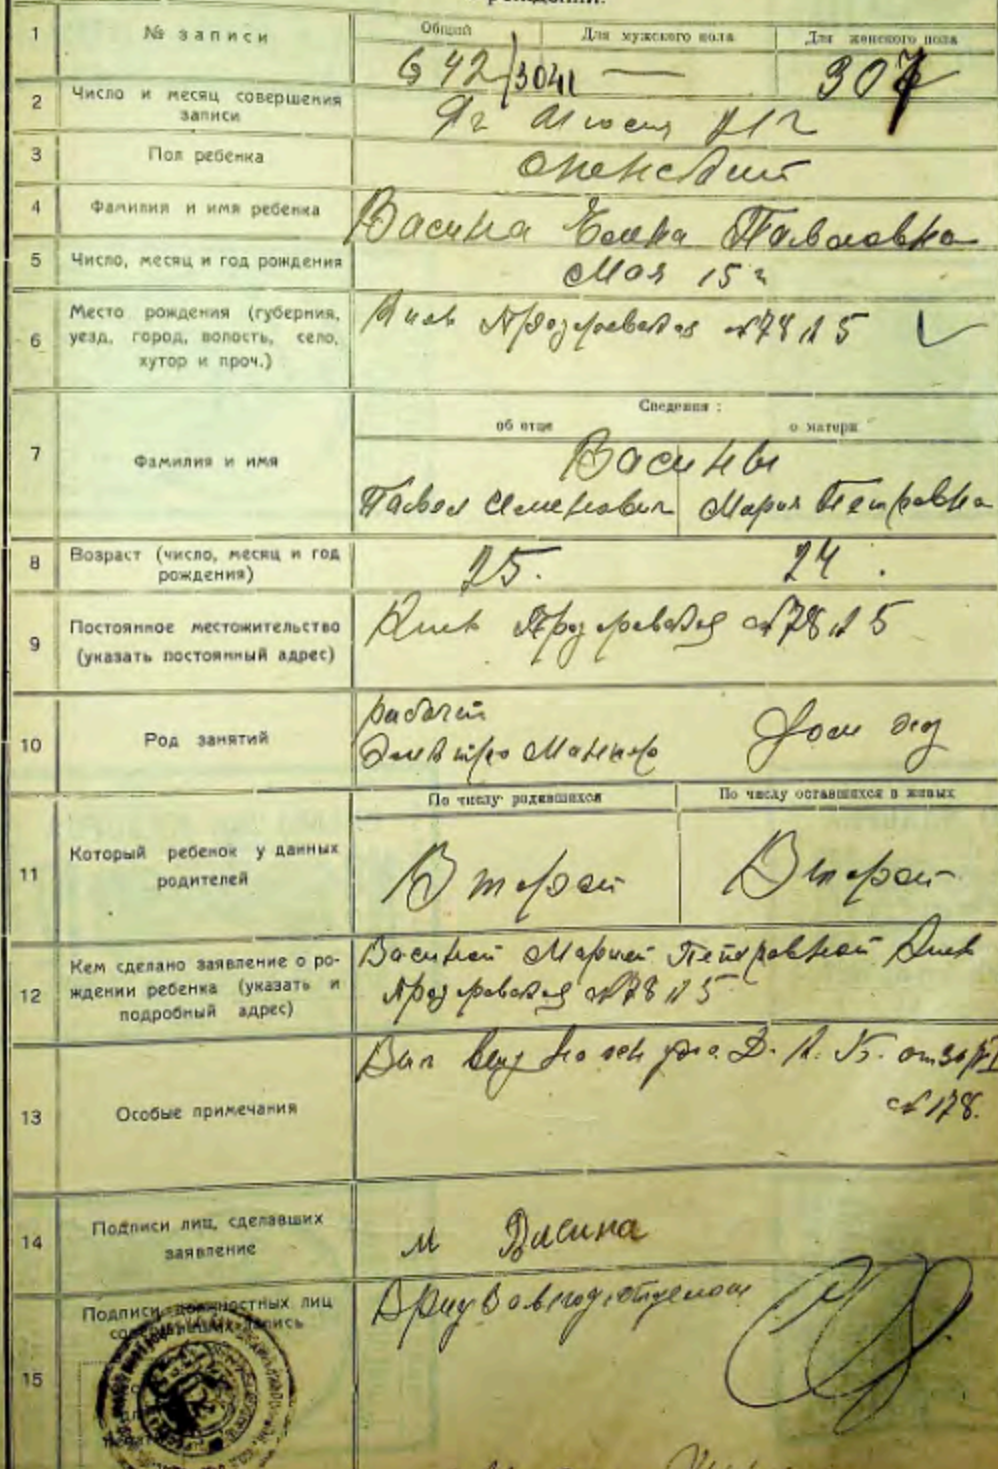 рождении.
1
№ записи
Общий
Для мужского пола
Для женского пола
642/3041
—
307
2
Число и месяц совершения
записи
июня
3
Пол ребенка
женский
4
Фамилия и имя ребенка
Васина Елена Павловна
5
Число, месяц и год рождения
Мая 15 г
6
Место рождения (губерния,
уезд, город, волость, село,
хутор и проч.)
Киев Прозоровская №78 5
7
Фамилия и имя
Сведения:
об отце
о матери
Васины
Павел Семенович
Мария Петровна
8
Возраст (число, месяц и год
рождения)
25.
24.
9
Постоянное местожительство
(указать постоянный адрес)
Киев Прозоровская №78 5
10
Род занятий
рабочий
Дом хоз
11
Который ребенок у данных
родителей
По числу родившихся
По числу оставшихся в живых
Второй
Второй
12
Кем сделано заявление о ро-
ждении ребенка (указать и
подробный адрес)
Васиной Марией Петровной Киев
Прозоровская №78 5
13
Особые примечания
№178.
14
Подписи лиц, сделавших
заявление
М Васина
15
Подписи должностных лиц
совершивших запись